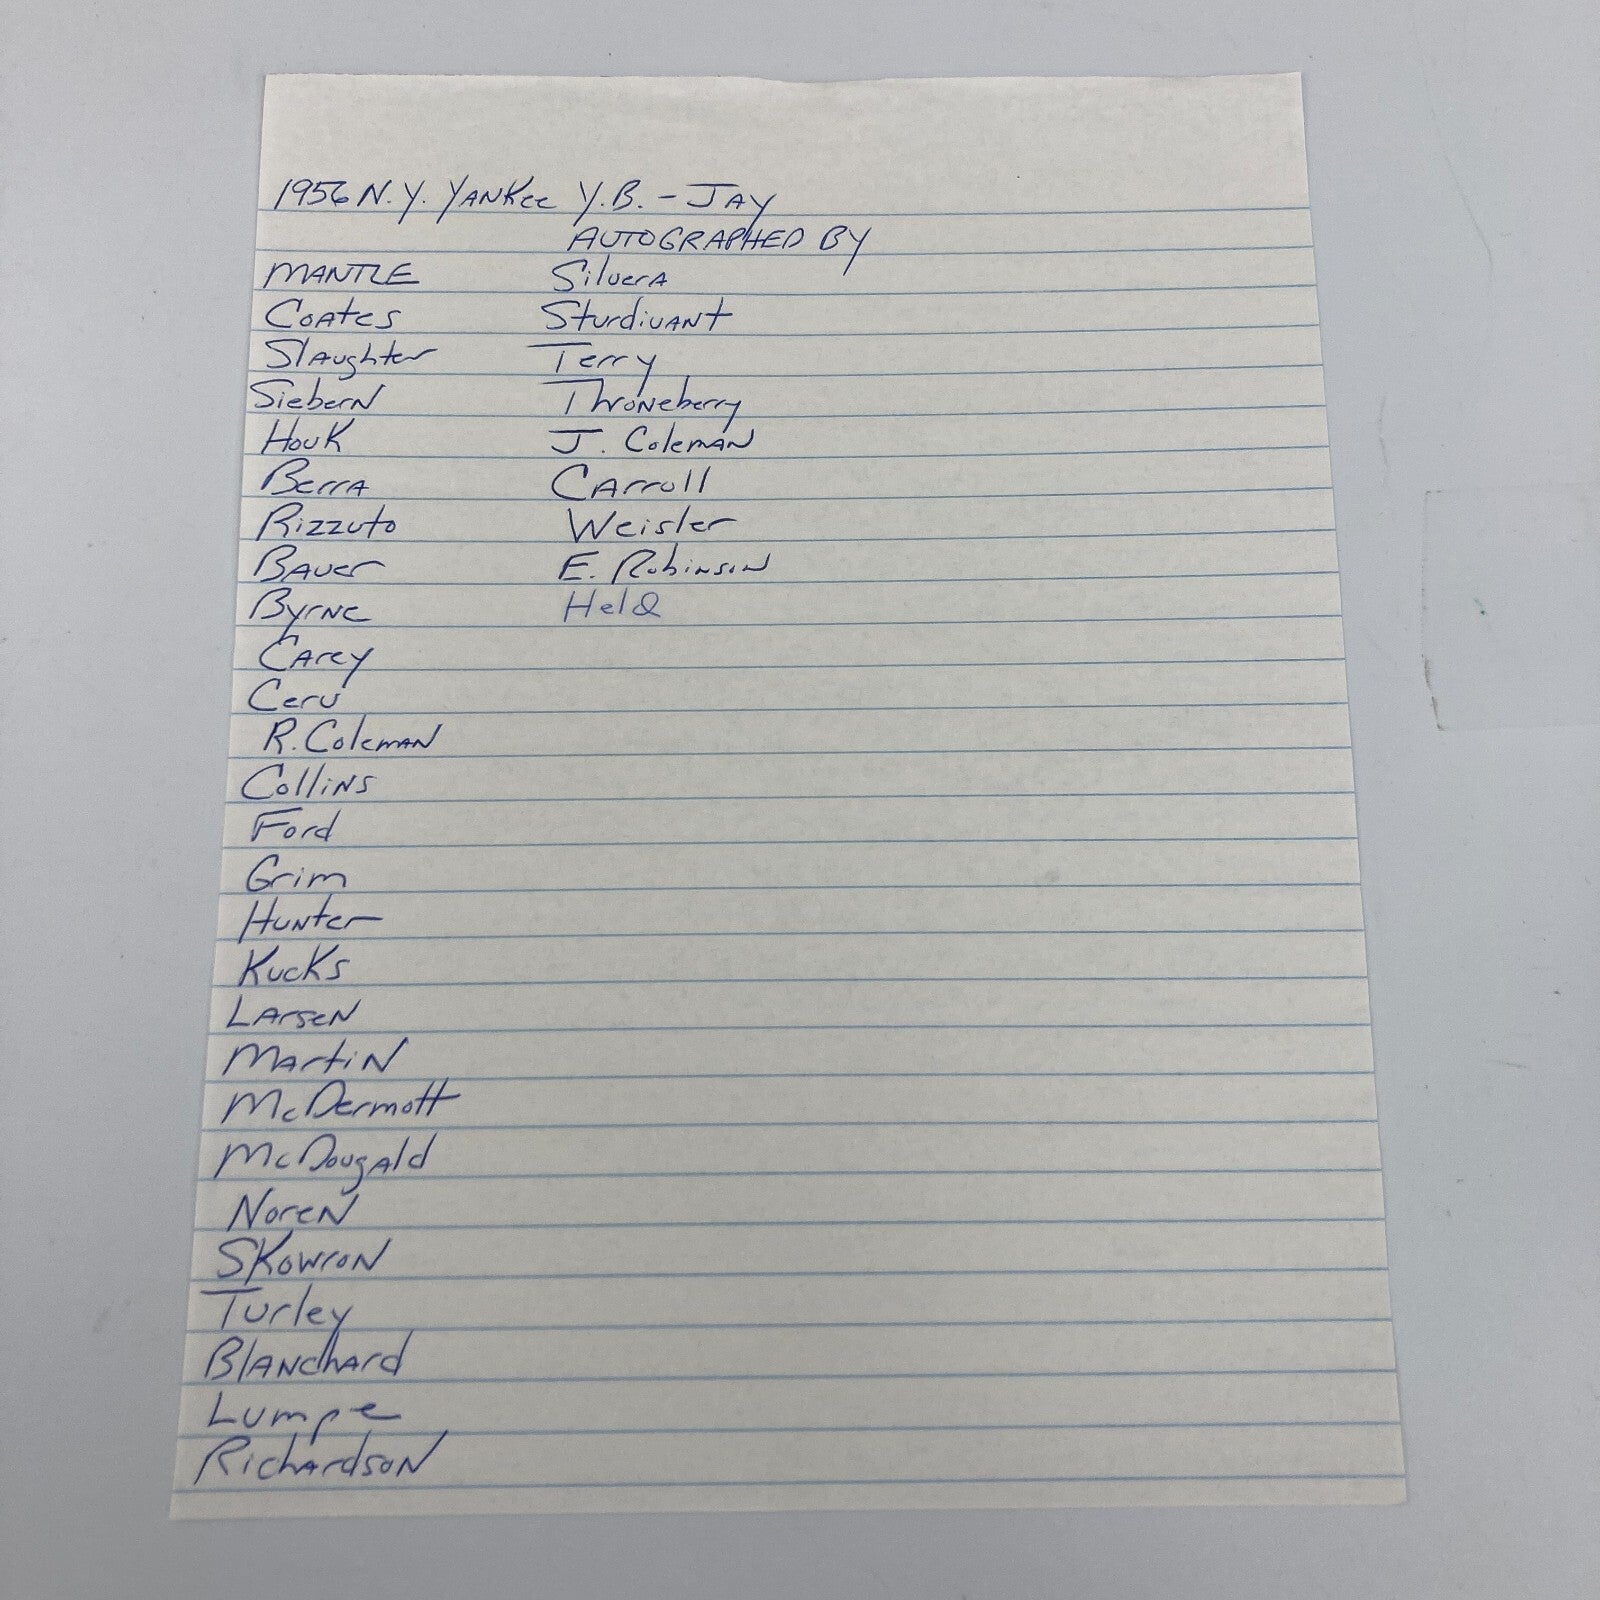 1956 N.Y. YANKEE Y.B. - JAY
AUTOGRAPHED BY
MANTLE
Coates
Slaughter
Siebern
Houk
Berra
Rizzuto
Bauer
Byrne
Carey
Cerv
R. Coleman
Collins
Ford
Grim
Hunter
Kucks
Larsen
Martin
McDermott
McDougald
Noren
Skowron
Turley
Blanchard
Lumpe
Richardson
Silvera
Sturdivant
Terry
Throneberry
J. Coleman
Carroll
Weisler
E. Robinson
Held